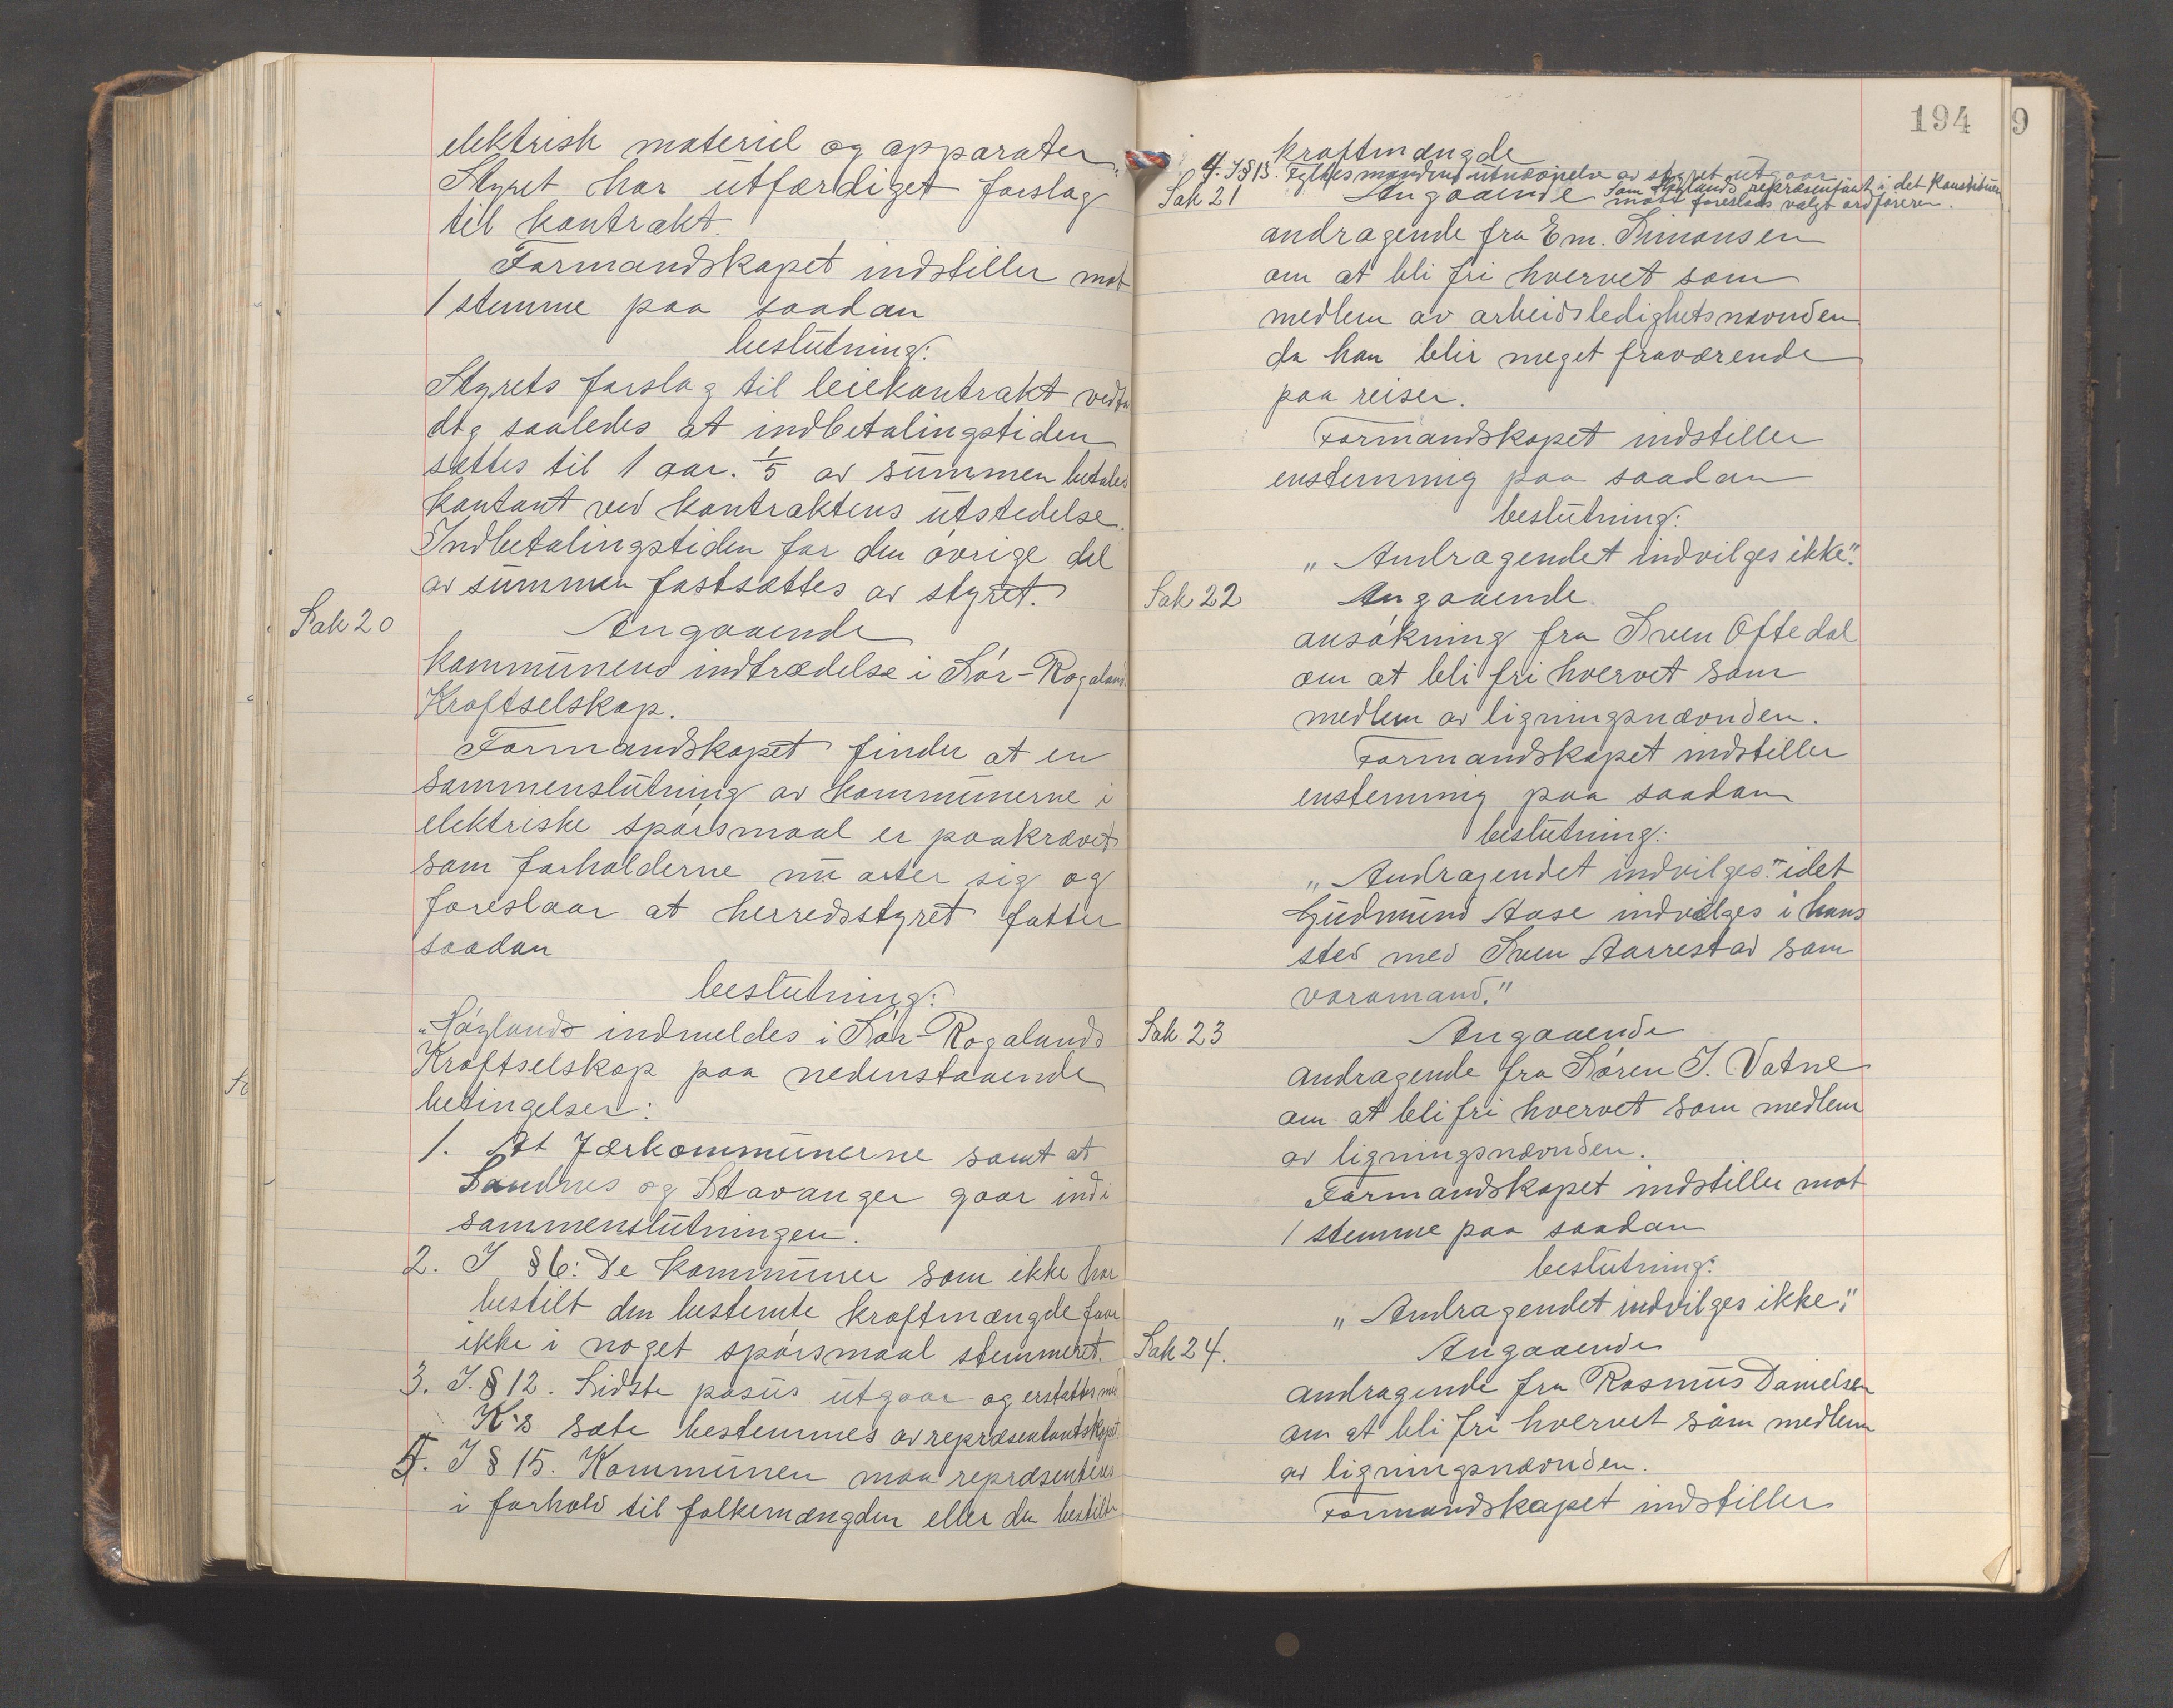 elektrisk materiel og apparater
Styret har utfærdiget forslag
til kontrakt.
Formandskapet indstiller mot
1 stemme paa saadan
beslutning:
Styrets forslag til leiekontrakt vedta
dtg saaledes at indbetalingstiden
sættes til 1 aar. 1/5 av summen betales
kontant ved kontraktens utstedelse.
Indbetalingstiden for den övrige del
av summen fastsættes av styret.
Sak 20
Angaaende
kommunens indtrædelse i Sör-Rogaland
Kraftselskap.
Formandskapet finder at en
sammenslutning av kommunerne i
elektriske spörsmaal er paakrævet
som forholderne nu arter sig og
foreslaar at herredsstyret fatter
saadan
beslutning:
"Höylands indmeldes i Sör-Rogalands
Kraftselskap paa nedenstaaende
betingelser:
1. At Jærkommunerne samt at
Sandnes og Stavanger gaar ind i
sammenslutningen.
2. I § 6: De kommuner som ikke har
bestilt den bestemte kraftmængde faar
ikke i noget spörsmaal stemmeret.
3. I. § 12. Sidste pasus utgaar og erstattes med
K's sæte bestemmes av repræsentantskapet
5. I § 15. Kommunen maa repræsenteres
i forhold til folkemængden eller den bestilte
194
9
kraftmængde
4. I § 13. Fylkesmandens utnævnelse av styret utgaar
Sak 21
Angaaende
Som Höylands repræsentant i det Konstituer
møte foreslaas valgt ordføreren.
andragende fra Em. Simonsen
om at bli fri hvervet som
medlem av arbeidsledighetsnævnden
da han blir meget fraværende
paa reiser.
Formandskapet indstiller
enstemmig paa saadan
beslutning:
"Andragendet indvilges ikke".
Sak 22
Angaaende
ansökning fra Sven Oftedal
om at bli fri hvervet som
medlem av ligningsnævnden.
Formandskapet indstiller
enstemmig paa saadan
beslutning:
"Andragendet indvilges." idet
Gudmund Aase indvælges i hans
sted med Sven Aarrestad som
varamand."
Sak 23
Angaaende
andragende fra Sören I. Vatne
om at bli fri hvervet som medlem
av ligningsnævnden.
Formandskapet indstiller mot
1 stemme paa saadan
beslutning:
"Andragendet indvilges ikke."
Sak 24.
Angaaende
andragende fra Rasmus Danielsen
om at bli fri hvervet som medlem
av ligningsnævnden.
Formandskapet indstiller